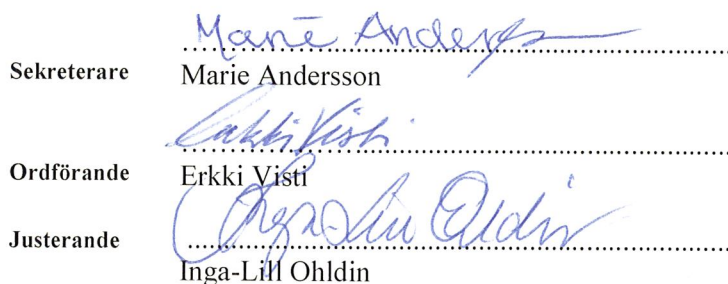 Marie Andersson
Sekreterare
Marie Andersson
Erkki Visti
Ordförande
Erkki Visti
Inga-Lill Ohldin
Justerande
Inga-Lill Ohldin